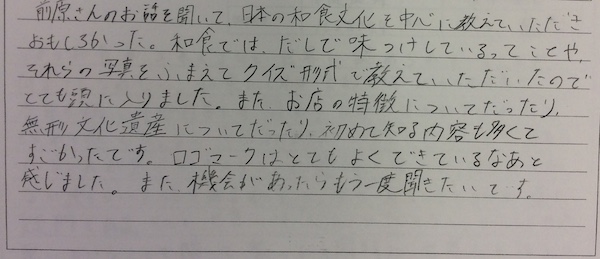 前原さんのお話を聞いて、日本の和食文化を中心に教えていただき
おもしろかった。和食では、だしで味つけしているってことや、
それらの写真をふまえてクイズ形式で教えていただいたので
とても頭に入りました。また、お店の特徴についてだったり、
無形文化遺産についてだったり、初めて知る内容も多くて
すごかったです。ロゴマークはとてもよくできているなあと
感じました。また、機会があったらもう一度聞きたいです。